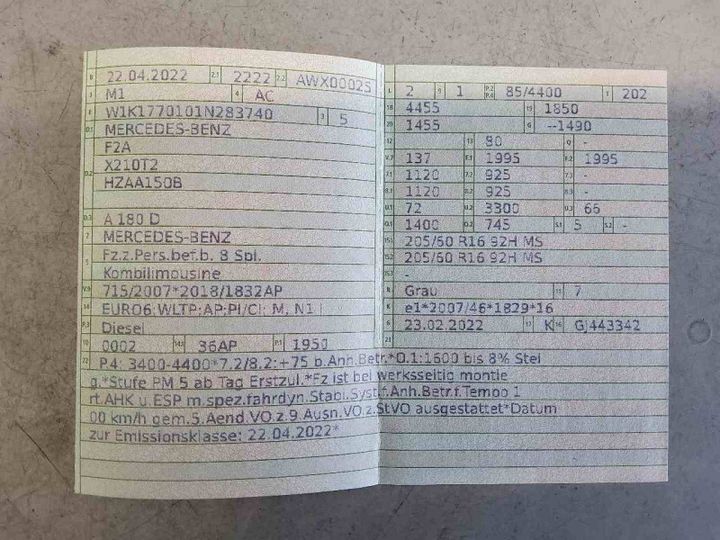 B 22.04.2022 2.1 2222 2.2 AWX00025
J M1 4 AC
E W1K1770101N283740 3 5
D.1 MERCEDES-BENZ
F2A
D.2 X210T2
HZAA150B
D.3 A 180 D
2 MERCEDES-BENZ
5 Fz.z.Pers.bef.b. 8 Spl.
Kombilimousine
V.9 715/2007*2018/1832AP
14 EURO6;WLTP;AP;PI/CI; M, N1 I
P.3 Diesel
10 0002 14.1 36AP P.1 1950
L 2 9 1 P.2 P.4 85/4400 T 202
18 4455 19 1850
20 1455 G --1490
12 - 13 80 Q -
V.7 137 F.1 1995 F.2 1995
7.1 1120 7.2 925 7.3 -
8.1 1120 8.2 925 8.3 -
U.1 72 U.2 3300 U.3 66
O.1 1400 O.2 745 S.1 5 S.2 -
15.1 205/60 R16 92H MS
15.2 205/60 R16 92H MS
15.3 -
R Grau 11 7
K e1*2007/46*1829*16
6 23.02.2022 17 K 16 GJ443342
21
22 P.4: 3400-4400*7.2/8.2:+75 b.Anh.Betr.*O.1:1600 bis 8% Stei
g.*Stufe PM 5 ab Tag Erstzul.*Fz ist bei werksseitig montie
rt.AHK u.ESP m.spez.fahrdyn.Stabi.Syst.f.Anh.Betr.f.Tempo 1
00 km/h gem.5.Aend.VO.z.9.Ausn.VO.z.StVO ausgestattet*Datum
zur Emissionsklasse: 22.04.2022*